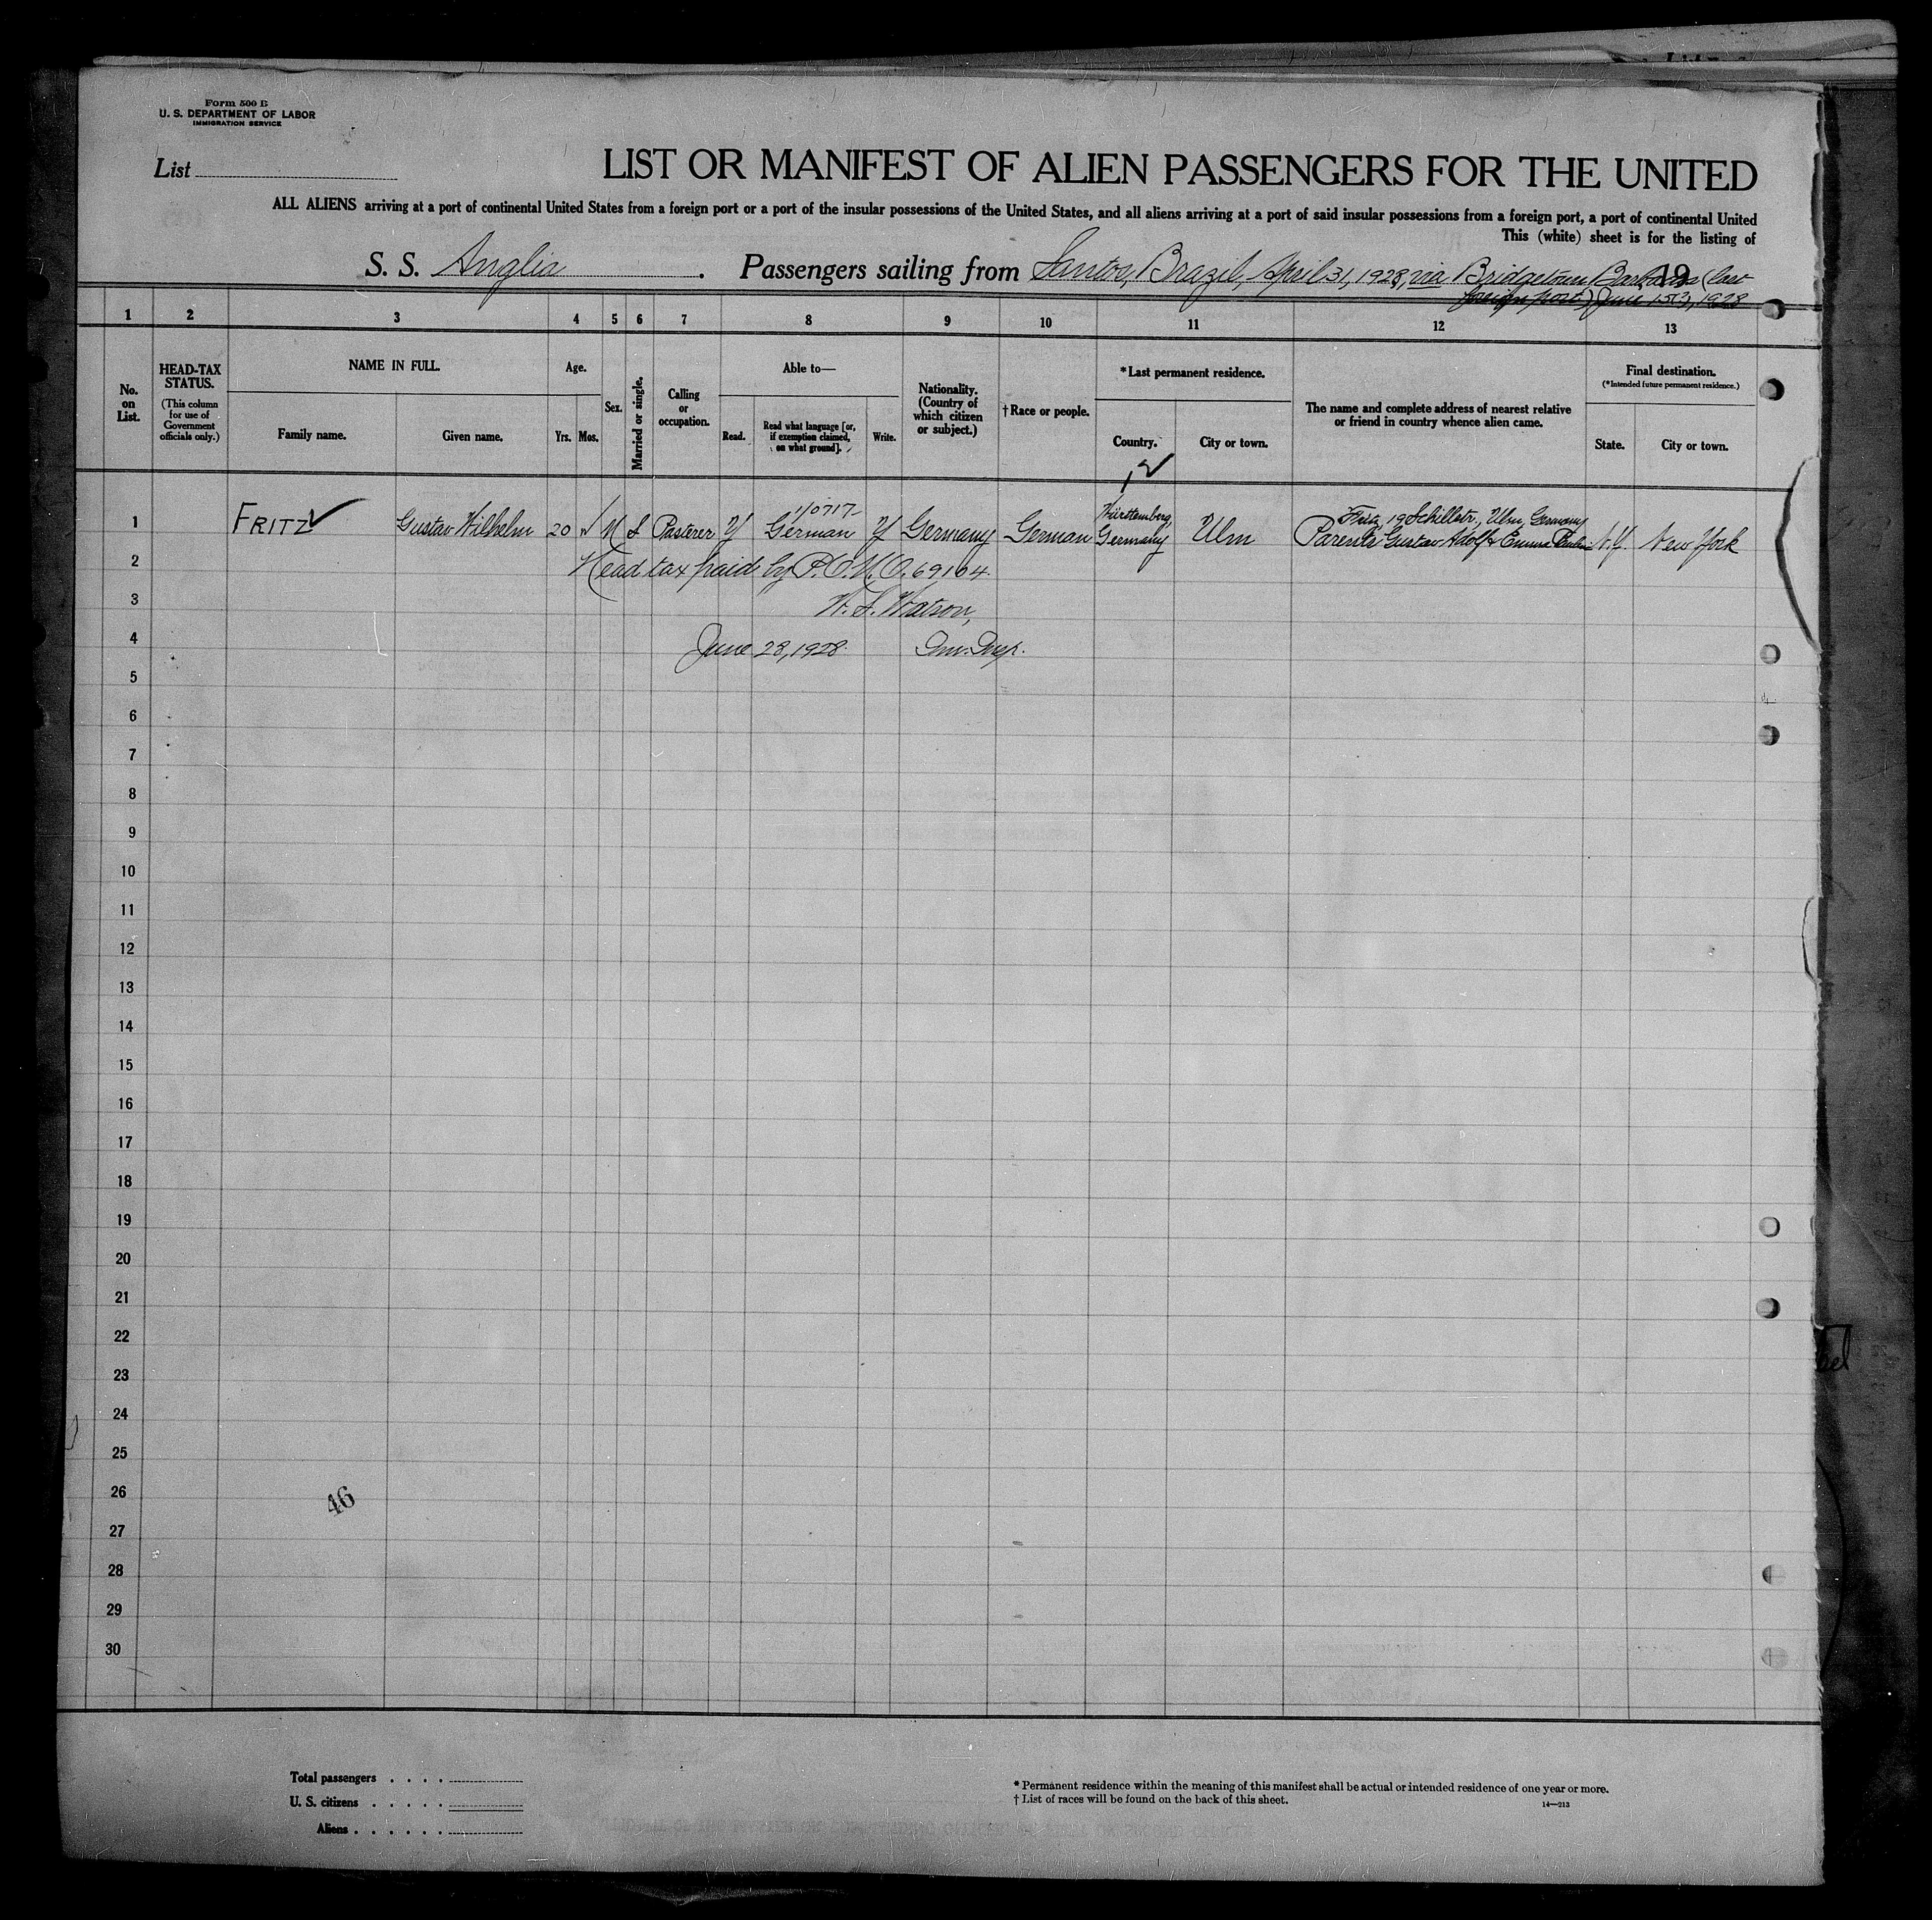 Form 500 B
U. S. DEPARTMENT OF LABOR
IMMIGRATION SERVICE
List
LIST OR MANIFEST OF ALIEN PASSENGERS FOR THE UNITED
ALL ALIENS arriving at a port of continental United States from a foreign port or a port of the insular possessions of the United States, and all aliens arriving at a port of said insular possessions from a foreign port, a port of continental United
This (white) sheet is for the listing of
S. S. Anglia . Passengers sailing from Santos, Brazil, April 31, 1928, via Bridgetown Barbados (last 19
foreign port) June 15, 1928
1 2 3 4 5 6 7 8 9 10 11 12 13
No. on List.
HEAD-TAX STATUS.
(This column for use of Government officials only.)
NAME IN FULL.
Family name. Given name.
Age.
Yrs. Mos.
Sex.
Married or single.
Calling or occupation.
Able to—
Read. Read what language [or, if exemption claimed, on what ground]. Write.
Nationality. (Country of which citizen or subject.)
†Race or people.
*Last permanent residence.
Country. City or town.
The name and complete address of nearest relative or friend in country whence alien came.
Final destination.
(*Intended future permanent residence.)
State. City or town.
1/0717
Württemberg, Fritz, 19 Schillstr., Ulm, Germany
1 FRITZ Gustav Wilhelm 20 M S Pasterer Y German Y Germany German Germany Ulm Parents Gustav Adolf & Emma N.Y. New York
2 Head tax paid by P.O.M.O. 69104.
3 W. S. Watson,
4 June 28, 1928. Im. Insp.
5
6
7
8
9
10
11
12
13
14
15
16
17
18
19
20
21
22
23
24
25
26
46
27
28
29
30
Total passengers . . . .
U. S. citizens . . . . .
Aliens . . . . . .
* Permanent residence within the meaning of this manifest shall be actual or intended residence of one year or more.
† List of races will be found on the back of this sheet.
14—213